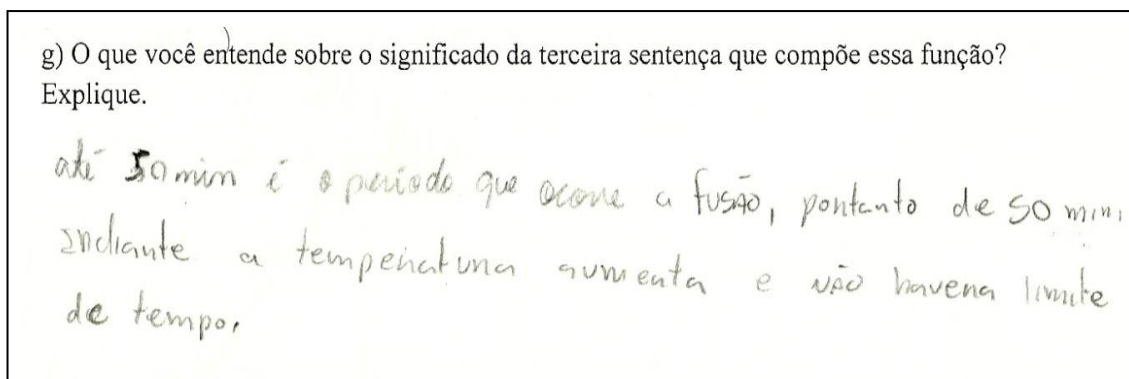 g) O que você entende sobre o significado da terceira sentença que compõe essa função?
Explique.
até 50 min é o periodo que ocorre a fusão, pontanto de 50 min,
indiante a tempenatuna aumenta e não havena limite
de tempo.